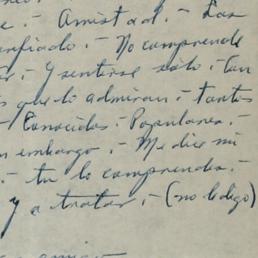 e. - Amistad. - Las
confiado. - No comprende
Y sentirse solo. - tan
que lo admiran. - tantos
- Conocidos. - Populares. -
n embargo. - Me dice mi
. - tu lo comprendes. -
y a tratar. - (no le digo)